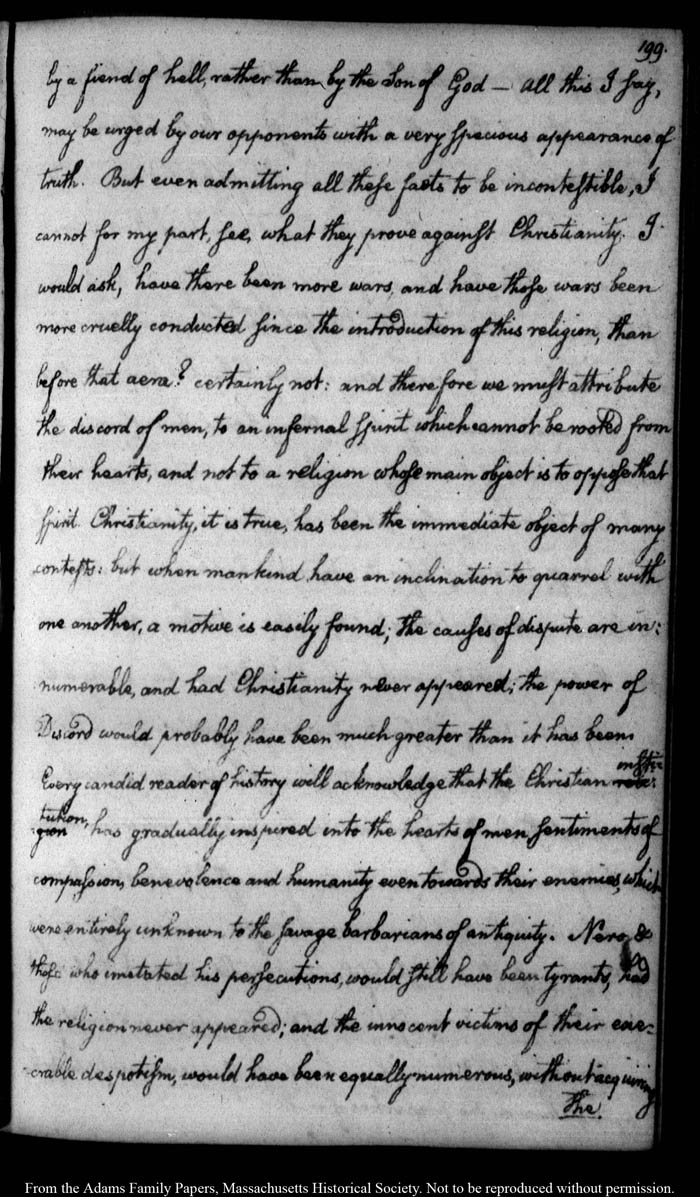 199.
by a fiend of hell, rather than by the Son of God — all this I say,
may be urged by our opponents with a very specious appearance of
truth. But even admitting all these facts to be incontestible, I
cannot for my part, see, what they prove against Christianity. I
would ask, have there been more wars, and have those wars been
more cruelly conducted since the introduction of this religion, than
before that aera? certainly not: and therefore we must attribute
the discord of men, to an infernal spirit which cannot be rooted from
their hearts, and not to a religion whose main object is to oppose that
spirit. Christianity, it is true, has been the immediate object of many
contests: but when mankind have an inclination to quarrel with
one another, a motive is easily found; the causes of dispute are in:
numerable, and had Christianity never appeared; the power of
Discord would probably have been much greater than it has been.
Every candid reader of history will acknowledge that the Christian insti= reli:
tution, gion has gradually inspired into the hearts of men sentiments of
compassion, benevolence and humanity even towards their enemies, which
were entirely unknown to the savage barbarians of antiquity. Nero &
those who imetated his persecutions, would still have been tyrants, had
the religion never appeared; and the innocent victims of their exe=
crable despotism, would have been equally numerous, without acquiring
The.
From the Adams Family Papers, Massachusetts Historical Society. Not to be reproduced without permission.